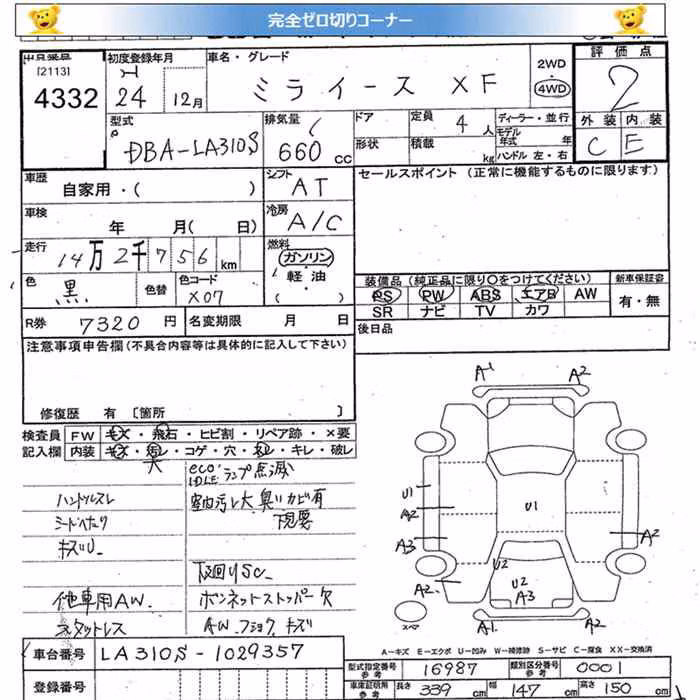 完全ゼロ切りコーナー
[2113]
4332
初度登録年月
H
24 12月
車名・グレード
ミライース XF
2WD
・
4WD
評価点
2
外装 内装
C E
型式
DBA-LA310S
排気量
660 cc
ドア
形状
定員 4 人
積載 kg
ディーラー・並行
モデル年式 年
ハンドル 左・右
車歴
自家用・( )
シフト
AT
セールスポイント (正常に機能するものに限ります)
車検
年 月( 日)
冷房
A/C
走行
14万2千756 km
燃料
ガソリン
軽油
( )
色
黒
色替
色コード
X07
装備品 (純正品に限り○をつけてください)
新車保証書
PS PW ABS エアB AW
SR ナビ TV カワ
有・無
R券 7320 円
名変期限 月 日
後日品
注意事項申告欄 (不具合内容等は具体的に記入して下さい)
修復歴 有 [箇所 ]
検査員
記入欄
FW キズ・飛石・ヒビ割・リペア跡・×要
内装 キズ・汚レ・コゲ・穴・ネレ・キレ・破レ
大
eco IDLE ランプ点滅
ハンドルスレ
室内汚レ大 臭い カビ有
シートへたり
下見要
キズU
下回りSC
他車用AW
ボンネットストッパー欠
スタットレス
AW
キズ
A1 A2
U1
A2
A3
U1
A2
U2
A2
U2
A3
A1 A2
スペア
A−キズ E−エクボ U−凹み W−補修跡 S−サビ C−腐食 XX−交換済
車台番号 LA310S-1029357
登録番号
型式指定番号 参考 16987
類別区分番号 参考 0001
車庫証明用 参考 長さ 339 cm 幅 147 cm 高さ 150 cm